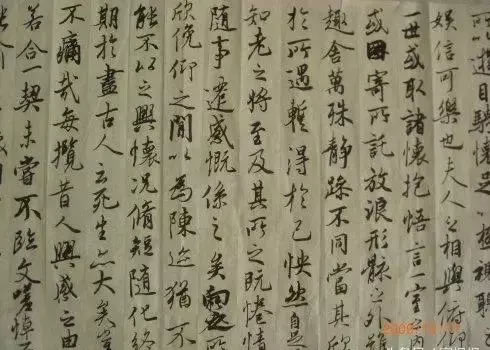 所以遊目騁懷足以極視聽
娛信可樂也夫人之相與俯仰
一世或取諸懷抱悟言一室內
或因寄所託放浪形骸之外雖
趣舍萬殊靜躁不同當其欣
於所遇暫得於己怏然自足
知老之將至及其所之既惓情
隨事遷感慨係之矣向之所
欣俛仰之間以為陳迹猶不
能不以之興懷況脩短隨化終
期於盡古人云死生亦大矣豈
不痛哉每攬昔人興感之由
若合一契未嘗不臨文嗟悼